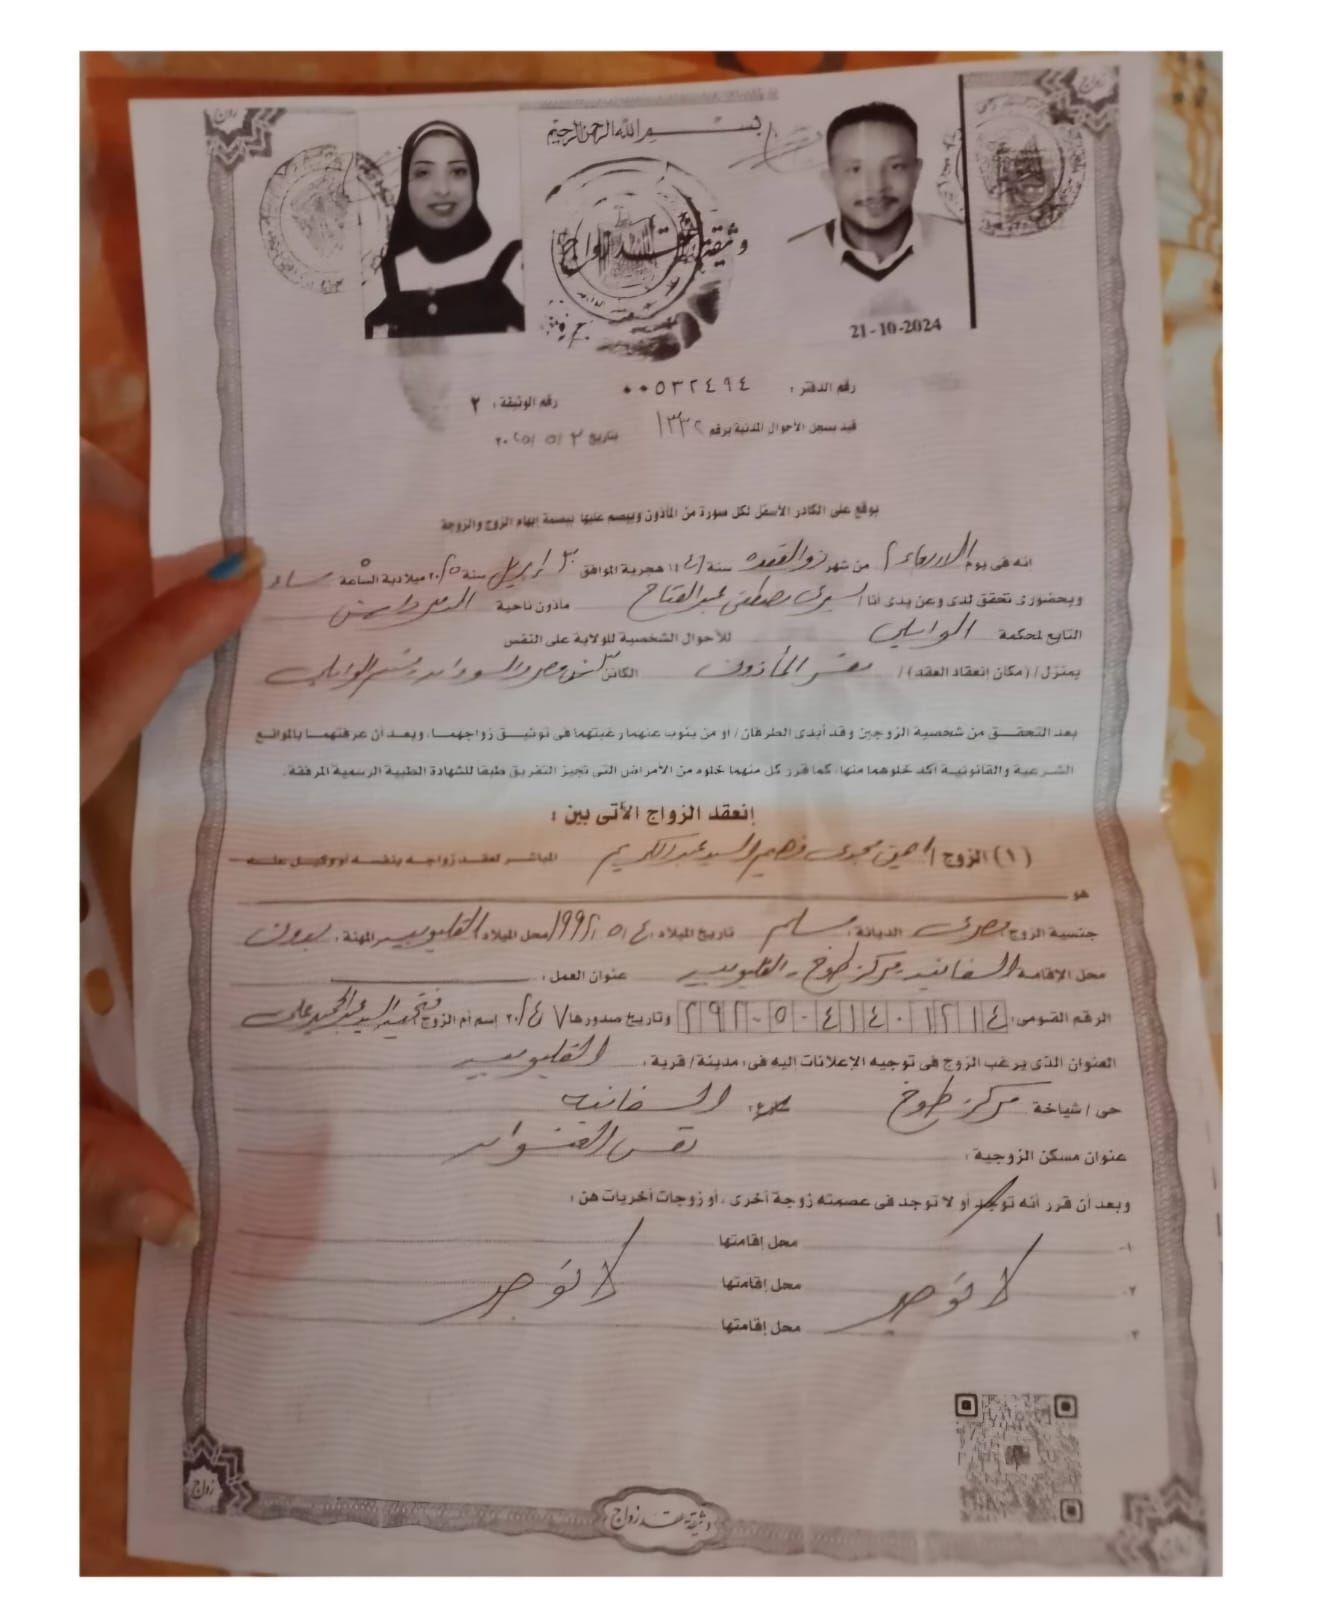 زواج
زواج
بسم الله الرحمن الرحيم
وثيقة عقد زواج
21-10-2024
رقم الدفتر : ٠٠٥٣٢٤٩٤
رقم الوثيقة : ٢
قيد بسجل الأحوال المدنية برقم ١٣٣٢ بتاريخ ٣ / ٥ / ٢٠٢٥
يوقع على الكادر الأسفل لكل صورة من المأذون ويبصم عليها ببصمة إبهام الزوج والزوجة
انه في يوم الاربعاء ٢ من شهر ذو القعده سنة ١٤٤٦ هجرية الموافق ٣٠ ابريل سنة ٢٠٢٥ ميلادية الساعة ٥ مساء
وبحضورى تحقق لدى وعن يدى أنا / يسرى مصطفى عبد الفتاح مأذون ناحية
التابع لمحكمة الوايلي للأحوال الشخصية للولاية على النفس
بمنزل / (مكان إنعقاد العقد) / مقر المأذون الكائن ش مصر والسودان قسم الوايلي
بعد التحقق من شخصية الزوجين وقد أبدى الطرفان / أو من ينوب عنهما رغبتهما فى توثيق زواجهما، وبعد أن عرفتهما بالموانع
الشرعية والقانونية أكد خلوهما منها، كما قرر كل منهما خلوه من الأمراض التى تجيز التفريق طبقا للشهادة الطبية الرسمية المرفقة.
إنعقد الزواج الأتى بين :
(١) الزوج / مجدى فهيم السيد عبد الكريم المباشر لعقد زواجه بنفسه أو وكيل عنه
هو
جنسية الزوج : مصرى الديانة : مسلم تاريخ الميلاد : ٤ / ٥ / ١٩٩٢ محل الميلاد : القليوبية المهنة : بدون
محل الإقامة : السفانيه - مركز طوخ - القليوبيه عنوان العمل :
الرقم القومى : ٢٩٢٠٥٠٤١٤٠١٢١٤ وتاريخ صدورها ٧ / ٤ / ٢٠ إسم أم الزوج : السيد عبد الحميد على
العنوان الذى يرغب الزوج فى توجيه الإعلانات اليه فى : مدينة / قرية : القليوبيه
حى / شياخة مركز طوخ السفانيه
عنوان مسكن الزوجية : نفس العنوان
وبعد أن قرر أنه توجد أو لا توجد فى عصمته زوجة أخرى ، أو زوجات أخريات هن :
١- محل إقامتها
٢- لا توجد محل إقامتها لا توجد
٣- محل إقامتها
زواج
وثيقة عقد زواج